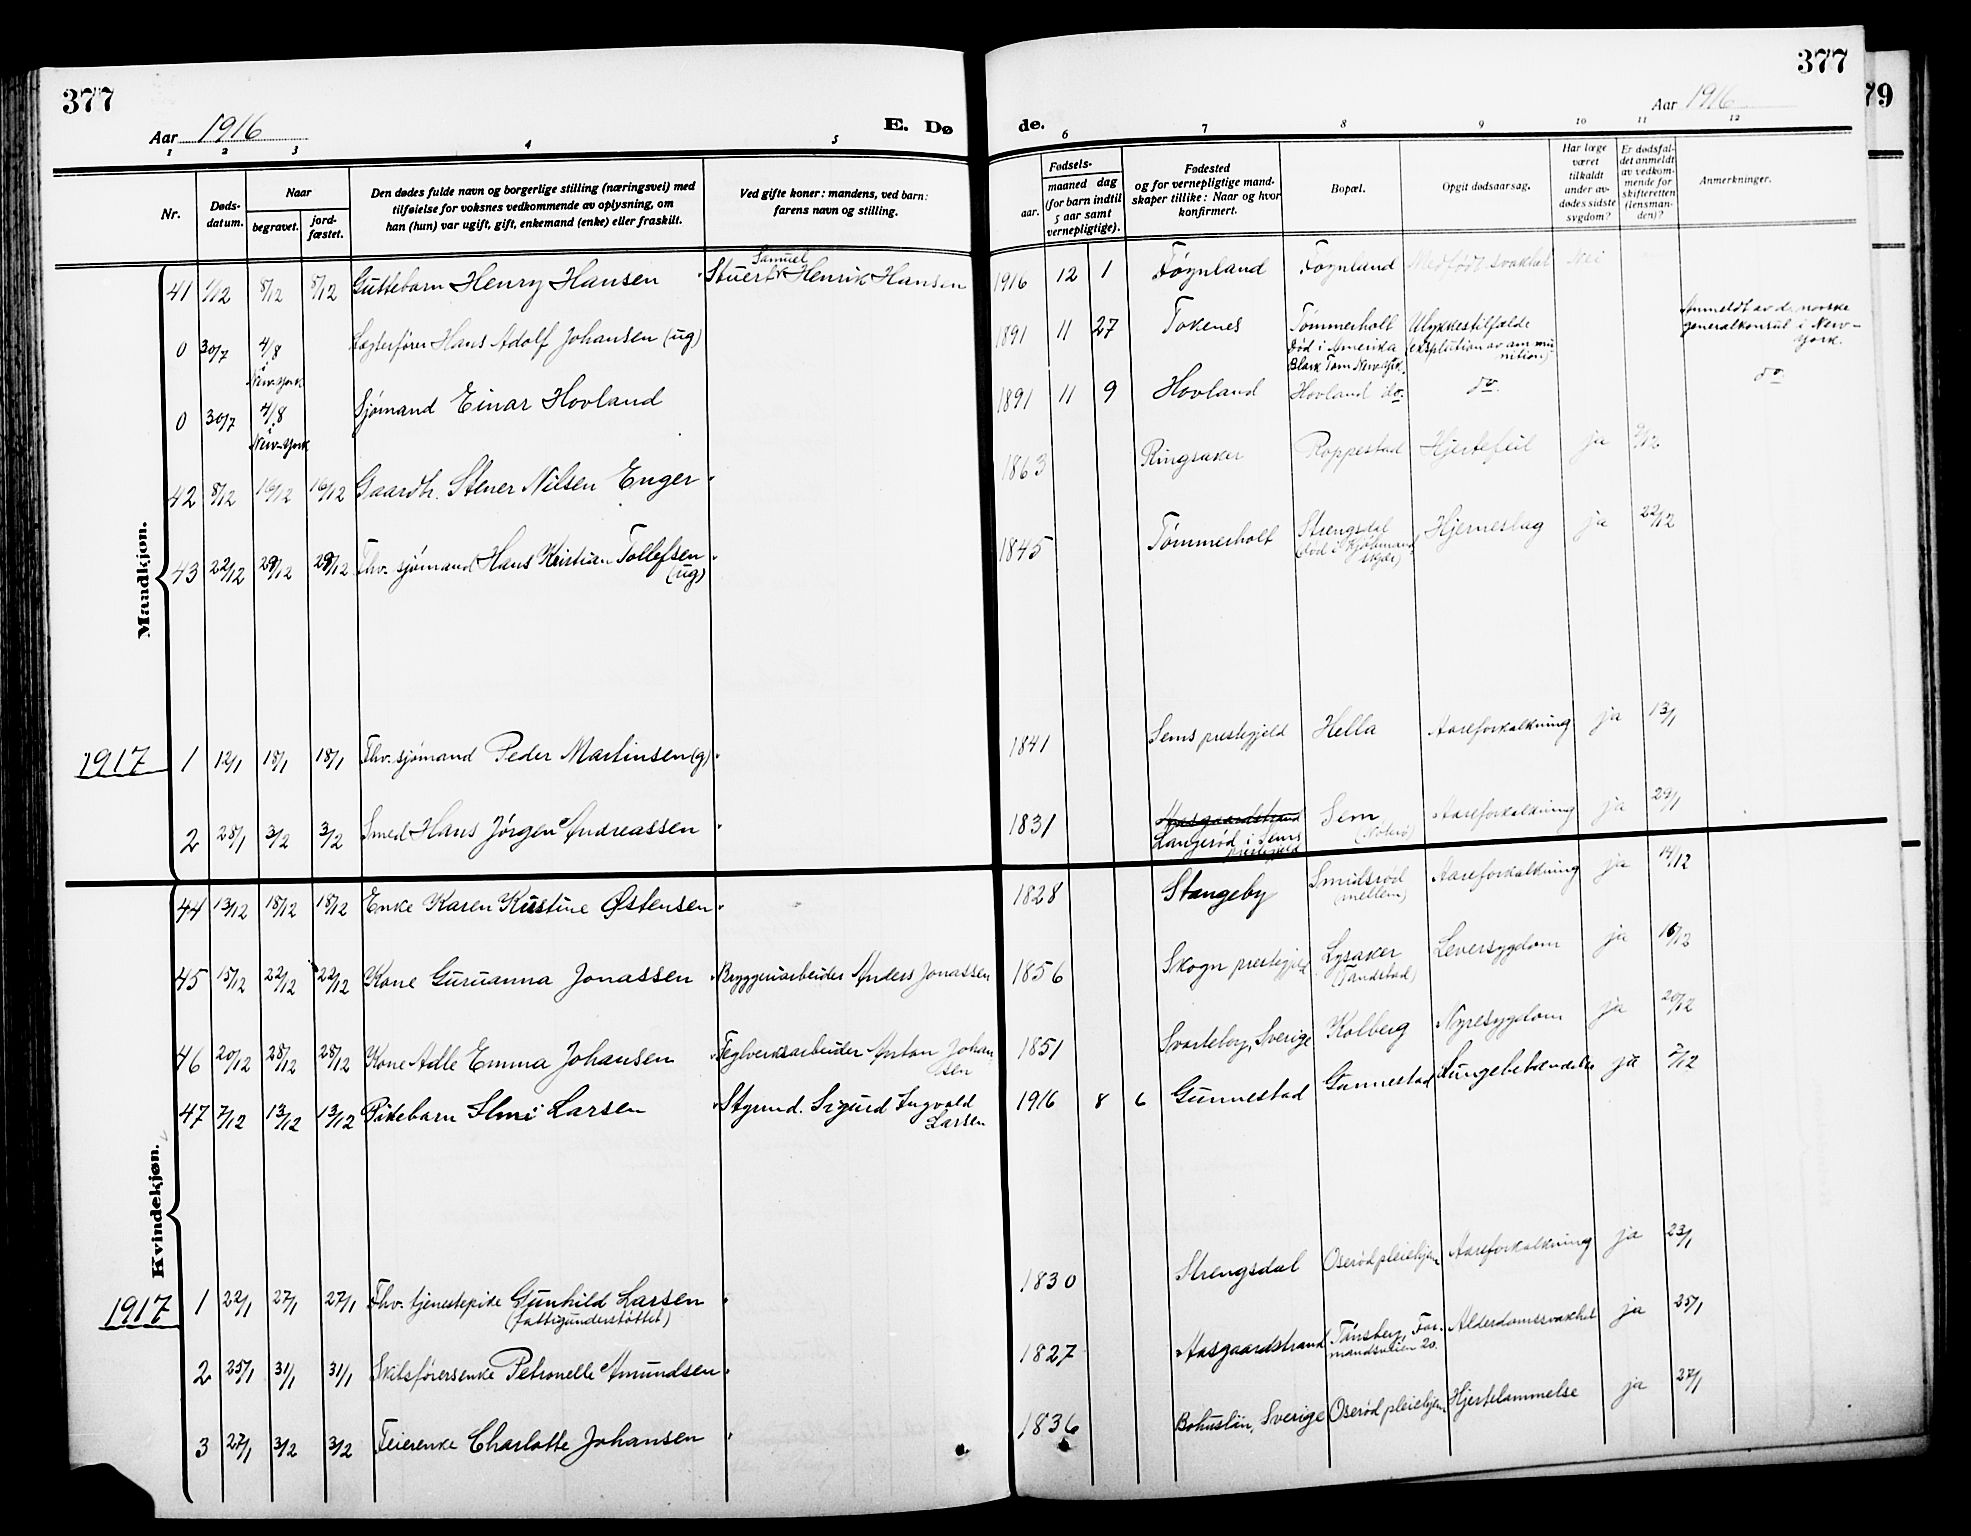 377
377
79
Aar 1916
E. Dø
de.
Aar 1916
1 2 3 4 5 6 7 8 9 10 11 12
Nr.
Døds-
datum.
Naar
begravet.
jord-
fæstet.
Den dødes fulde navn og borgerlige stilling (næringsvei) med
tilføielse for voksnes vedkommende av oplysning, om
han (hun) var ugift, gift, enkemand (enke) eller fraskilt.
Ved gifte koner: mandens, ved barn:
farens navn og stilling.
Fødsels-
aar.
maaned dag
(for barn indtil
5 aar samt
vernepligtige).
Fødested
og for vernepligtige mand-
skaper tillike: Naar og hvor
konfirmert.
Bopæl.
Opgit dødsaarsag.
Har læge
været
tilkaldt
under av-
dødes sidste
sygdom?
Er dødsfal-
det anmeldt
av vedkom-
mende for
skifteretten
(lensman-
den)?
Anmerkninger.
Mandkjøn.
41 1/12 8/12 8/12 Guttebarn Henry Hansen Stuert Samuel Henrik Hansen 1916 12 1 Føynland Føynland Medfødt svakhet Nei
0 30/7 4/8 i New-York Lægterfører Hans Adolf Johansen (ug) 1891 11 27 Tokenes Tømmerholt Ulykkestilfælde
død i Amerika (eksplotion av ammu-
Black Tom New-York. nition)
Anmeldt av de norske
generalkonsul i New-
York.
0 30/7 4/8 i New-York Sjømand Einar Hovland 1891 11 9 Hovland Hovland do. do. do.
42 8/12 16/12 16/12 Gaardbr. Stener Nilsen Enger 1863 Ringsaker Roppestad Hjertefeil ja 9/12
43 22/12 29/12 29/12 Fhv. sjømand Hans Kristian Tollefsen
(ug)
1845 Tømmerholt Strengsdal Hjerneslag ja 22/12
(død i Kjøbmand
skjær)
1917 1 12/1 18/1 18/1 Fhv. sjømand Peder Martinsen (g) 1841 Sems prestegjeld Hella Aareforkalkning ja 13/1
2 28/1 3/2 3/2 Smed Hans Jørgen Andreassen 1831 Aasgaardstrand Sem Aareforkalkning ja 29/1
Langerød i Sems
prestegjeld
Kvindekjøn.
44 13/12 18/12 18/12 Enke Karen Kristine Østensen 1828 Stangeby Smidsrød Aareforkalkning ja 14/12
(mellem)
45 15/12 22/12 22/12 Kone Guruanna Jonassen Bryggeriarbeider Anders Jonassen 1856 Skogn prestegjeld Lysaker Leversygdom ja 16/12
(Tandstad)
46 20/12 28/12 28/12 Kone Adle Emma Johansen Teglverksarbeider Anton Johan-
sen
1851 Svarteborg, Sverige Kolberg Nyresygdom ja 20/12
47 7/12 13/12 13/12 Pikebarn Elmi Larsen Styrmd. Sigurd Ingvald
Larsen
1916 8 6 Gunnestad Gunnestad Lungebetændelse ja 7/12
1917 1 22/1 27/1 27/1 Fhv. tjenestepike Gunhild Larsen
(fattigunderstøttet)
1830 Strengsdal Oserød pleiehjem Aareforkalkning ja 23/1
2 25/1 31/1 31/1 Skibsførersenke Petronelle Amundsen 1827 Aasgaardstrand Tønsberg, For- Alderdomssvakhet ja 25/1
mandsveien 20.
3 27/1 3/2 3/2 Feierenke Charlotte Johansen 1836 Bohuslän, Sverige Oserød pleiehjem Hjertelammelse ja 27/1